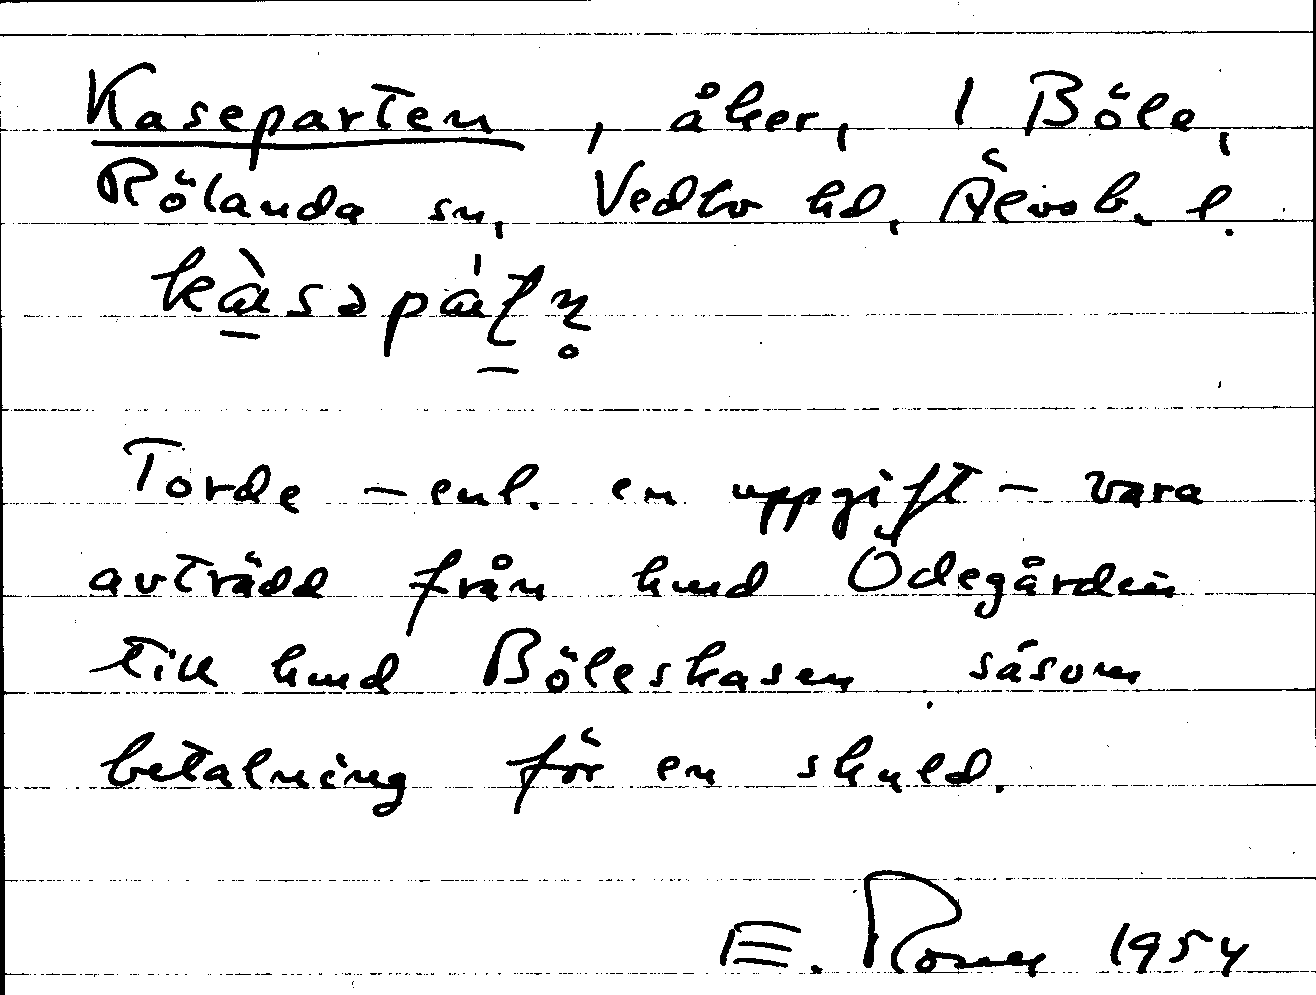 Kaseparten, åker, 1 Böle,
Rölanda sn, Vedbo hd, Älvsb. l.
Torde - enl. en uppgift - vara
avträdd från hmd Ödegården
till hmd Böleskasen såsom
betalning för en skuld.
E. 1954